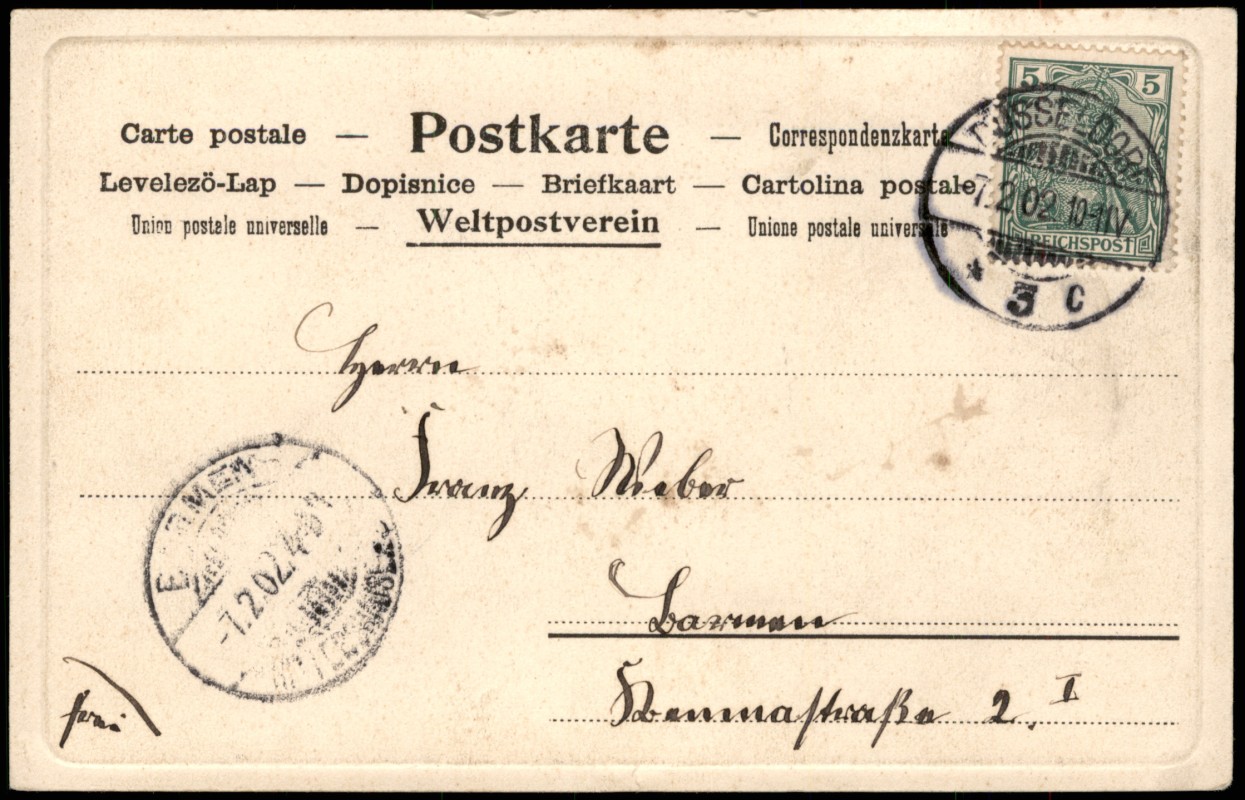 Carte postale — Postkarte — Correspondenzkarte
Levelezö-Lap — Dopisnice — Briefkaart — Cartolina postale
Union postale universelle — Weltpostverein — Unione postale universale
5 5
REICHSPOST
DÜSSELDORF
7.2.02 10-11V
* 3 c
Herrn
Franz Weber
Barmen
BARMEN
-7.2.02.
2. I
frei